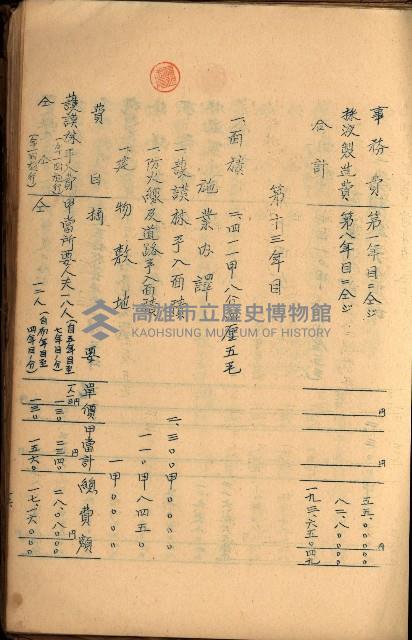 事務費 第一年目ニ仝ジ 円 五五.〇〇〇
採浚製造費 第八年目ニ仝ジ 八二.八〇〇〇
合計 円 一九三.六五〇四九
第十三年目
一、面積 二四二一甲八分五厘五毛
施業内譯
一、設護林手入面積 二、三〇〇甲〇〇〇〇
一、防火線及道路手入面積 一一〇甲八四五〇
一、建物敷地 一甲〇〇〇〇
費目 摘要 單價 甲當計 總費額
護謨林手入費 甲當所要人夫一八人(自五年目至七年目ノ分) 一人ニ付 一.三〇 円 二三.四〇 円 二八.〇八〇
仝 仝 一二人(自前年目至四年目ノ分) 一.三〇 一五.六〇 一七.一六〇
高雄市立歷史博物館
KAOHSIUNG MUSEUM OF HISTORY